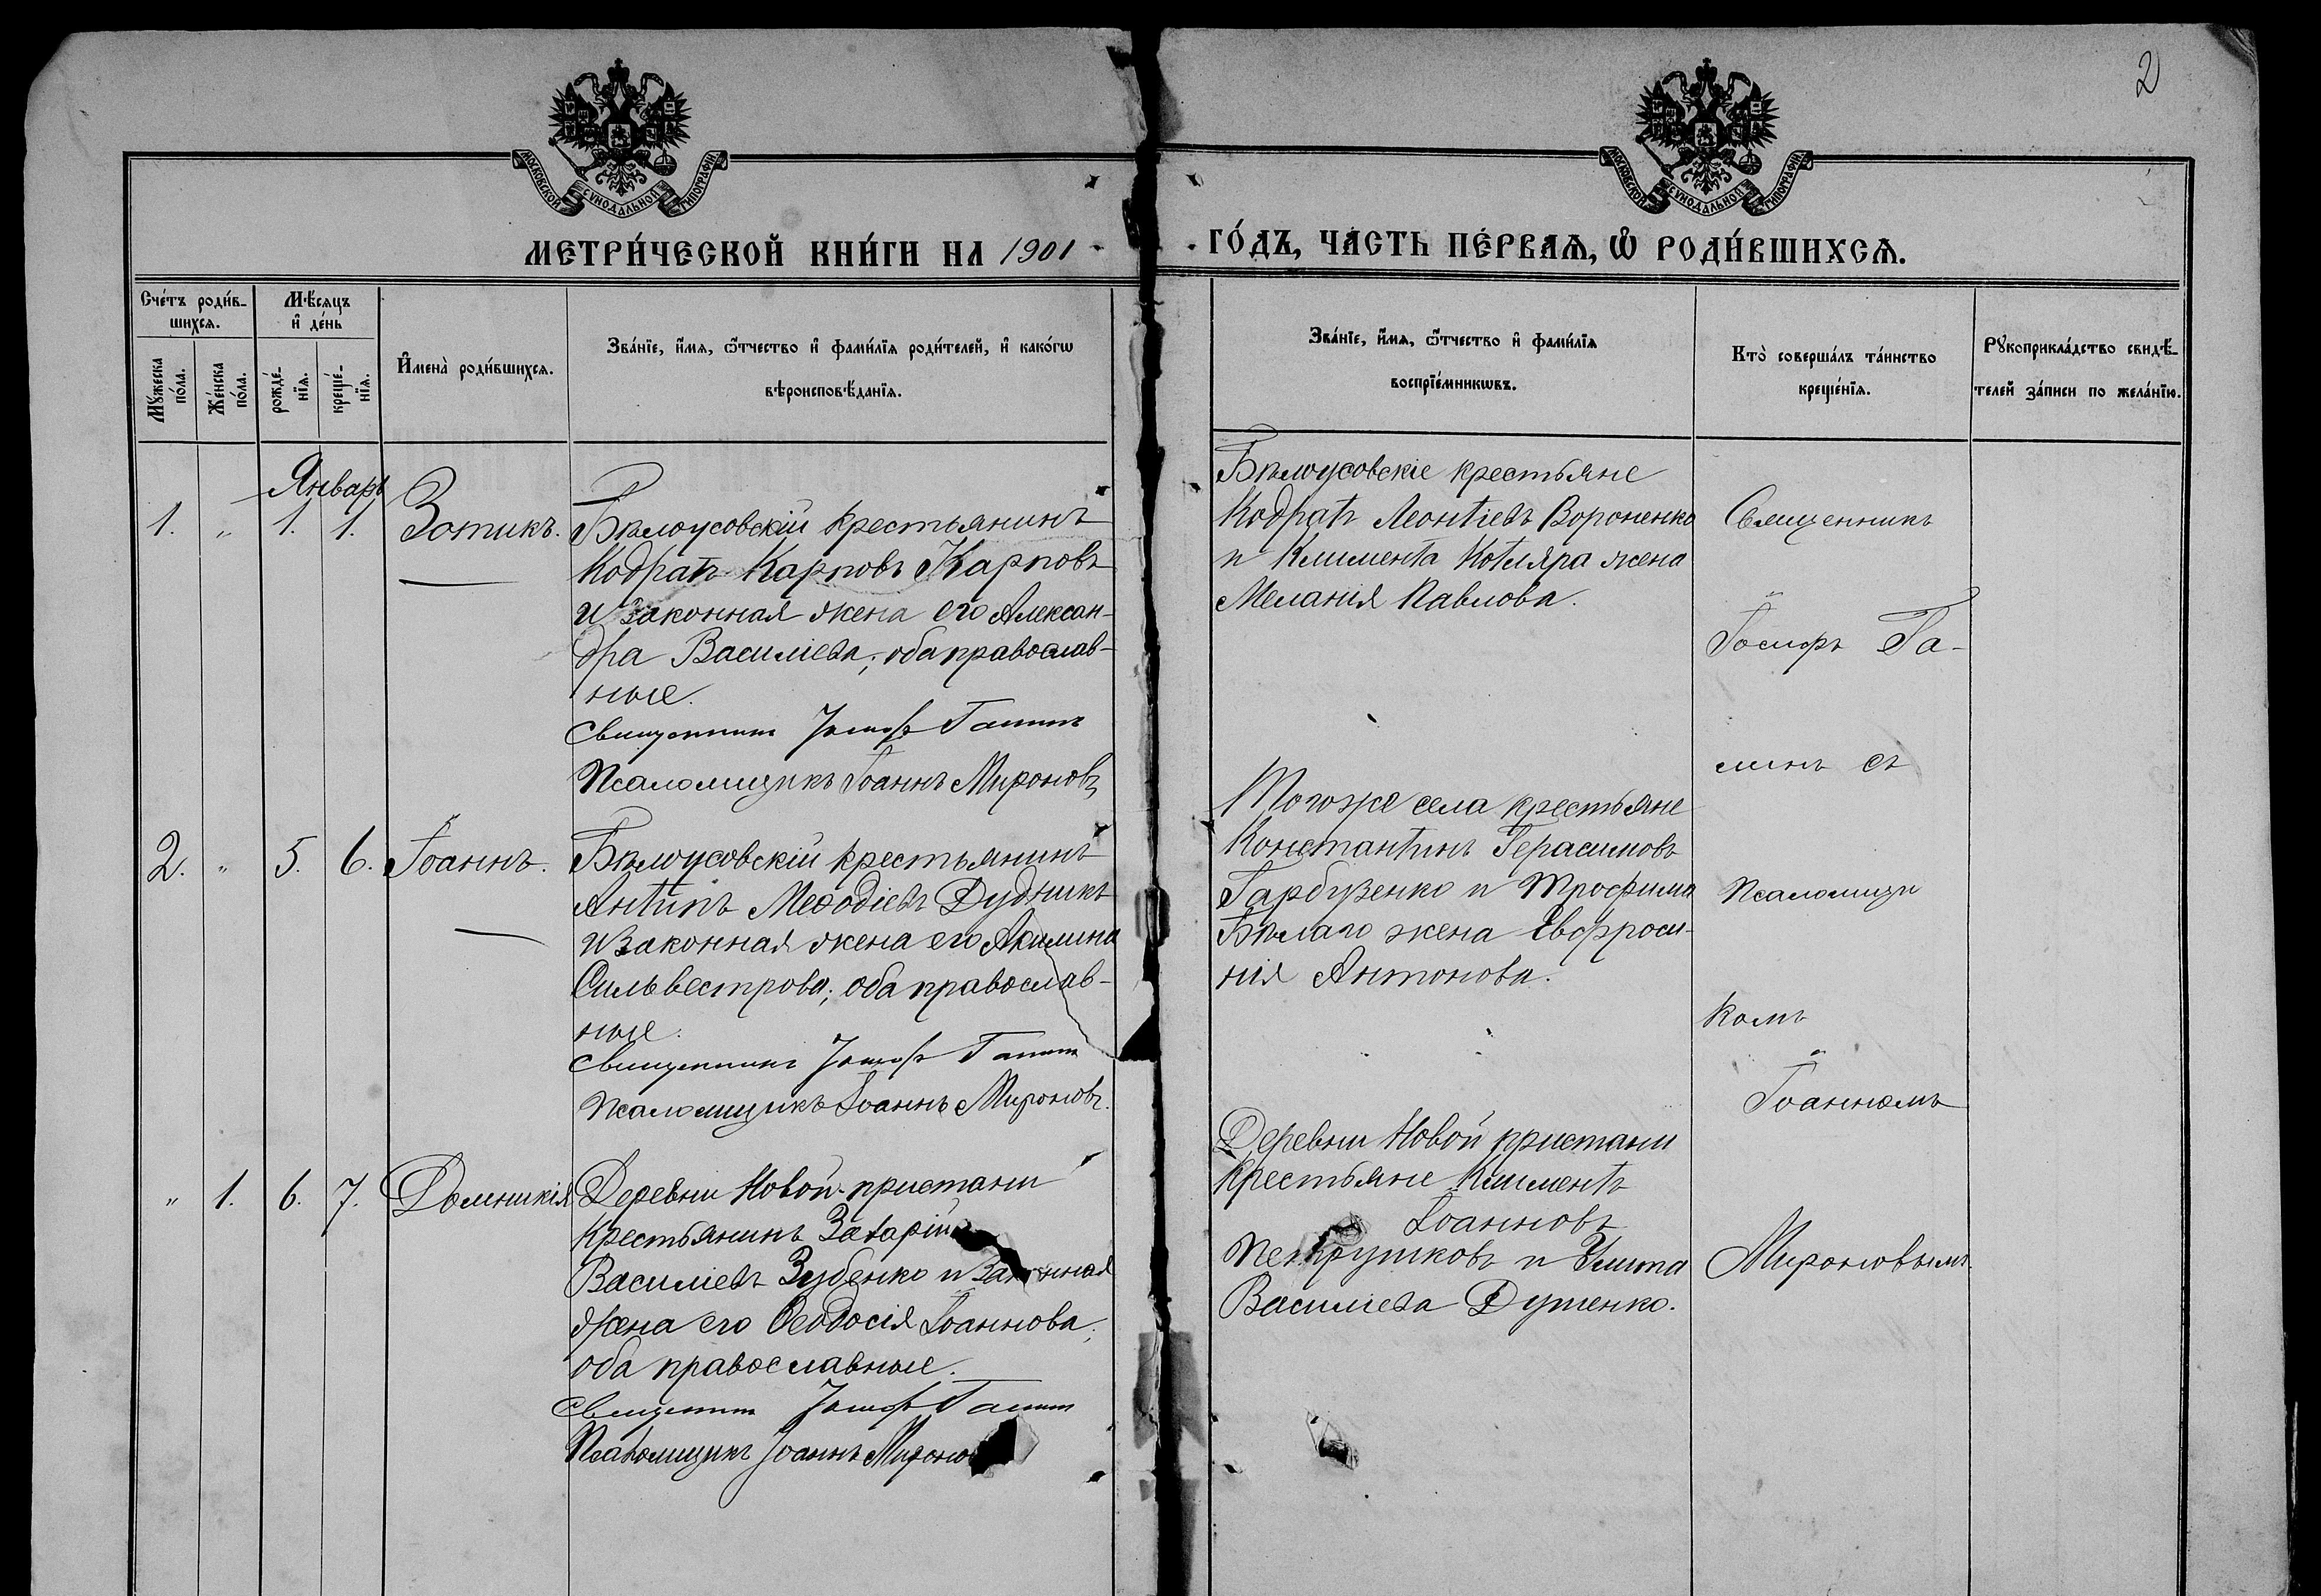 2
МОСКОВСКОЙ СУНОДАЛЬНОЙ ТИПОГРАФІИ
МОСКОВСКОЙ СУНОДАЛЬНОЙ ТИПОГРАФІИ
МЕТРИ́ЧЕСКОЙ КНИ́ГИ НА 1901
ГО́ДЪ, ЧА́СТЬ ПЕ́РВАЯ, Ѽ РОДИ́ВШИХСѦ.
Сче́тъ роди́в-
шихсѧ.
Мꙋ́жеска
по́ла.
Же́нска
по́ла.
Мѣ́сѧцъ
и҆ де́нь
рожде́-
нїѧ.
креще́-
нїѧ.
И҆мена̀ роди́вшихсѧ.
Зва́нїе, и҆́мѧ, ѻ҆́тчество и҆ фами́лїѧ роди́телей, и҆ како́гѡ
вѣроисповѣ́данїѧ.
Зва́нїе, и҆́мѧ, ѻ҆́тчество и҆ фами́лїѧ
воспрїе́мникѡвъ.
Кто̀ соверша́лъ та́инство
креще́нїѧ.
Рꙋкоприкла́дство свидѣ́-
телей за́писи по жела́нїю.
Январь
1. " 1. 1. Зотикъ.
Бѣлоусовскій крестьянинъ
Кодратъ Карповъ Карповъ
и законная жена его Алексан-
дра Василіева; оба православ-
ные.
Священникъ Іосифъ Галинъ
Псаломщикъ Іоаннъ Мироновъ
Бѣлоусовскіе крестьяне
Кодратъ Леонтіевъ Вороненко
и Климента Котляра жена
Меланія Павлова.
2. " 5. 6. Іоаннъ.
Бѣлоусовскій крестьянинъ
Антипъ Меѳодіевъ Дудникъ
и законная жена его Акилина
Сильвестрова; оба православ-
ные.
Священникъ Іосифъ Галинъ
Псаломщикъ Іоаннъ Мироновъ.
Того же села крестьяне
Константинъ Герасимовъ
Гарбузенко и Трофима
Бѣлаго жена Евфроси-
нія Антонова.
" 1. 6. 7. Домникія
Деревни Новой-пристани
крестьянинъ Захарій
Василіевъ Зубенко и законная
жена его Ѳеодосія Іоаннова;
оба православные.
Священникъ Іосифъ Галинъ
Псаломщикъ Іоаннъ Мироно
Деревни Новой пристани
крестьяне Климентъ
Іоанновъ
Петрушковъ и Улита
Василіева Дутенко.
Священникъ
Іосифъ Га-
линъ съ
Псаломщи
комъ
Іоанномъ
Мироновымъ.